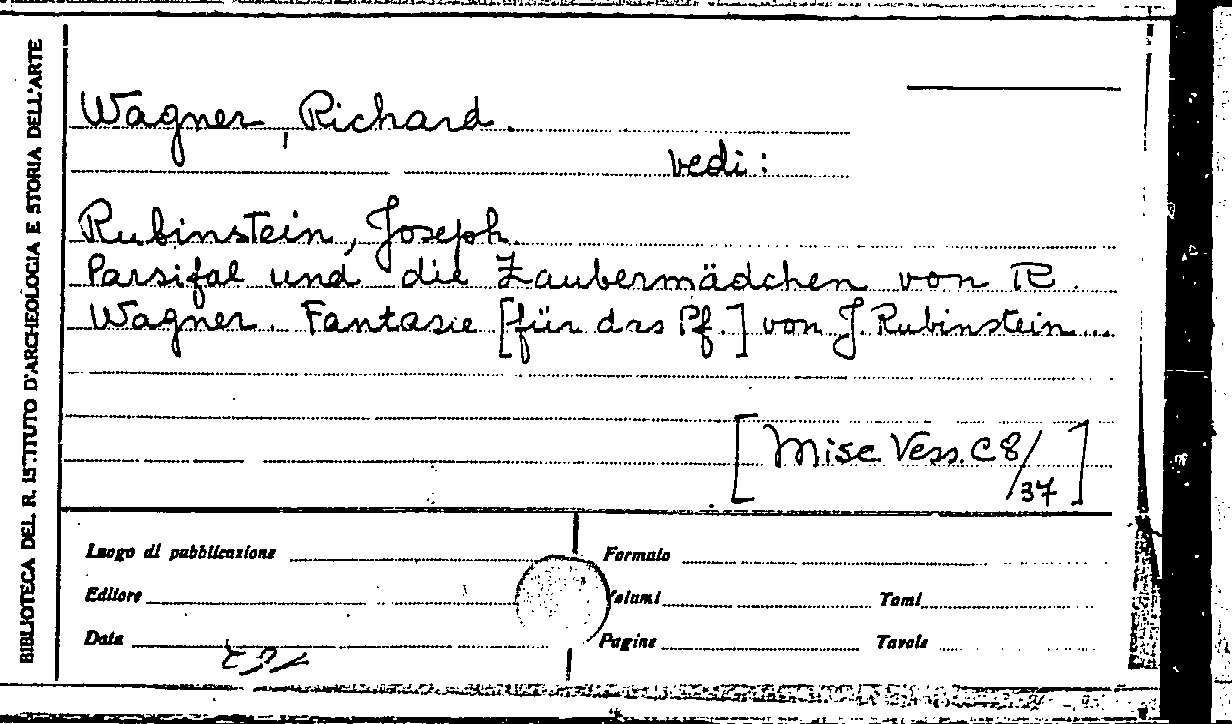 BIBLIOTECA DEL R. ISTITUTO D'ARCHEOLOGIA E STORIA DELL'ARTE
Wagner, Richard.
vedi:
Rubinstein, Joseph.
Parsifal und die Zaubermädchen von R.
Wagner. Fantasie [für das Pf.] von J. Rubinstein...
[Misc Vess. C8/37]
Luogo di pubblicazione
Formato
Editore
Volumi
Tomi
Data
Pagine
Tavole